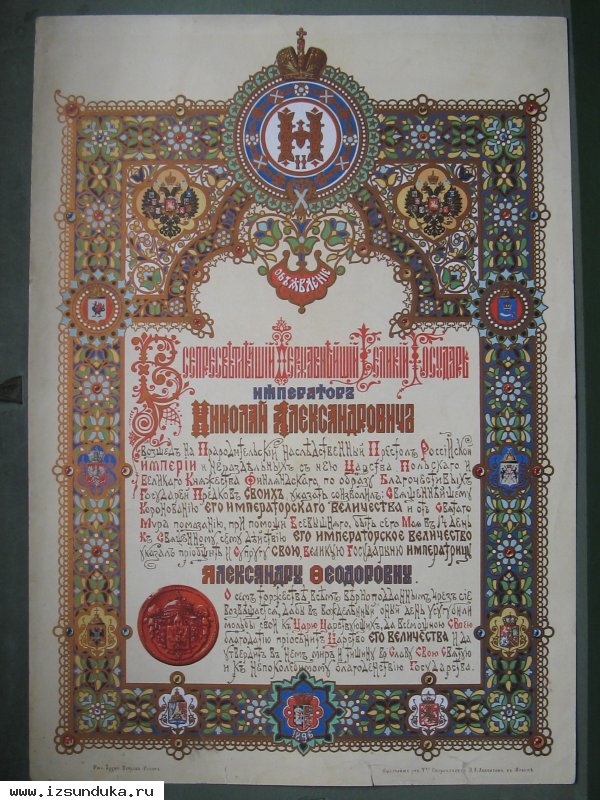 Н
II
ОБЪЯВЛЕНІЕ
ВСЕПРЕСВѢТЛѢЙШІЙ ДЕРЖАВНѢЙШІЙ ВЕЛИКІЙ ГОСУДАРЬ
ИМПЕРАТОРЪ
НИКОЛАЙ АЛЕКСАНДРОВИЧЪ
ВОШЕДЪ НА ПРАРОДИТЕЛЬСКІЙ НАСЛѢДСТВЕННЫЙ ПРЕСТОЛЪ РОССІЙСКОЙ
ИМПЕРІИ И НЕРАЗДѢЛЬНЫХЪ СЪ НЕЮ ЦАРСТВА ПОЛЬСКАГО И
ВЕЛИКАГО КНЯЖЕСТВА ФИНЛЯНДСКАГО, ПО ОБРАЗУ БЛАГОЧЕСТИВЫХЪ
ГОСУДАРЕЙ ПРЕДКОВЪ СВОИХЪ УКАЗАТЬ СОИЗВОЛИЛЪ: СВЯЩЕННѢЙШЕМУ
КОРОНОВАНІЮ ЕГО ИМПЕРАТОРСКАГО ВЕЛИЧЕСТВА И ОТЪ СВЯТАГО
МѴРА ПОМАЗАНІЮ, ПРИ ПОМОЩИ ВСЕВЫШНЯГО, БЫТЬ СЕГО МАЯ ВЪ ДЕНЬ
КЪ СВЯЩЕННОМУ СЕМУ ДѢЙСТВІЮ ЕГО ИМПЕРАТОРСКОЕ ВЕЛИЧЕСТВО
УКАЗАЛЪ ПРІОБЩИТЬ И СУПРУГУ СВОЮ, ВЕЛИКУЮ ГОСУДАРЫНЮ ИМПЕРАТРИЦУ
АЛЕКСАНДРУ ѲЕОДОРОВНУ.
О СЕМЪ ТОРЖЕСТВѢ ВСѢМЪ ВѢРНОПОДДАННЫМЪ ЧРЕЗЪ СІЕ
ВОЗВѢЩАЕТСЯ, ДАБЫ ВЪ ВОЖДЕЛѢННЫЙ ОНЫЙ ДЕНЬ УСУГУБИЛИ
МОЛЬБЫ СВОИ КЪ ЦАРЮ ЦАРСТВУЮЩИХЪ, ДА ВСЕМОЩНОЮ СВОЕЮ
БЛАГОДАТІЮ ПРІОСѢНИТЪ ЦАРСТВО ЕГО ВЕЛИЧЕСТВА И ДА
УТВЕРДИТЪ ВЪ НЕМЪ МИРЪ И ТИШИНУ ВО СЛАВУ СВОЮ СВЯТУЮ
И КЪ НЕПОКОЛЕБИМОМУ БЛАГОДЕНСТВІЮ ГОСУДАРСТВА.
1896
www.izsunduka.ru